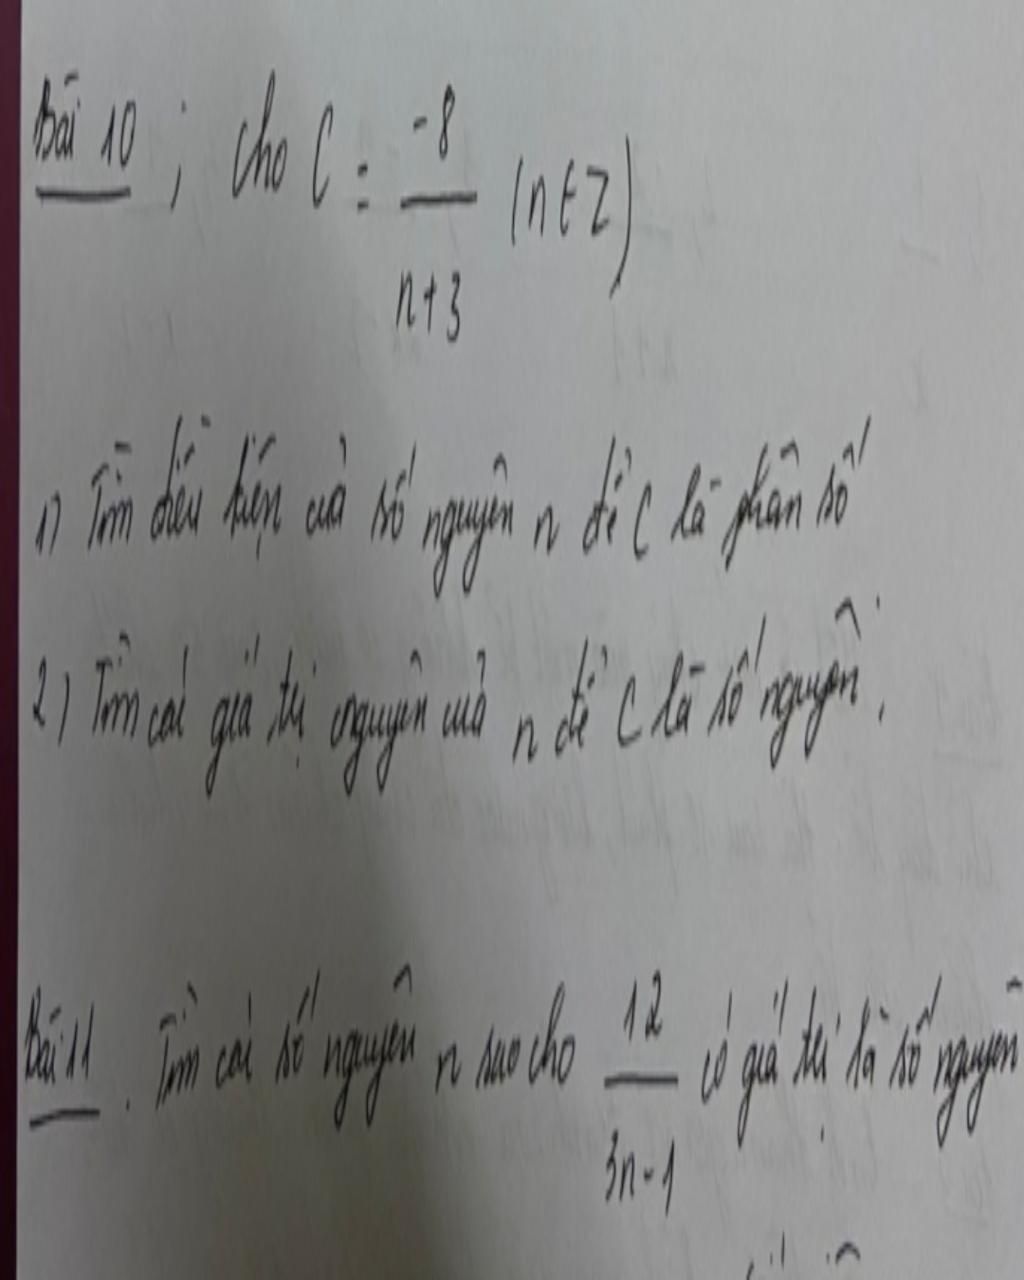 Bài 10 ; Cho C = -8/n+3 (n ∈ Z)
1) Tìm điều kiện của số nguyên n để C là phân số
2) Tìm các giá trị nguyên của n để C là số nguyên.
Bài 11. Tìm các số nguyên n sao cho 12/3n-1 có giá trị là số nguyên